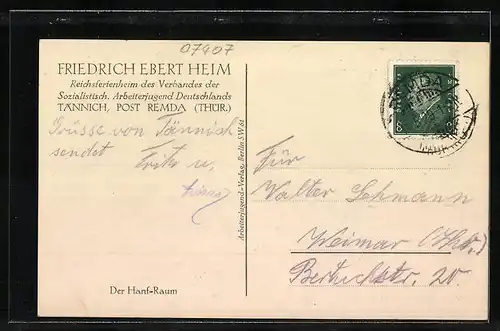 07407
FRIEDRICH EBERT HEIM
Reichsferienheim des Verbandes der
Sozialistisch. Arbeiterjugend Deutschlands
TÄNNICH, POST REMDA (THÜR.)
Grüsse von Tännich
sendet
Fritz u.
Arbeiterjugend-Verlag, Berlin SW 61
Für
Walter Lehmann
Weimar (Thür.)
Bertuchstr. 20.
Der Hanf-Raum
8